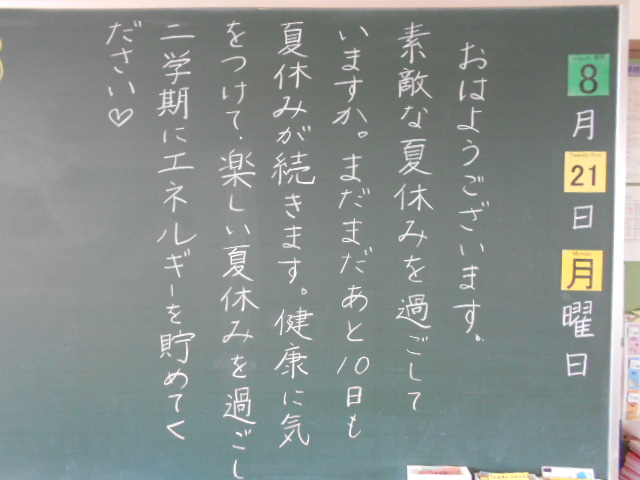 8月21日月曜日
おはようございます。
素敵な夏休みを過ごして
いますか。まだまだあと10日も
夏休みが続きます。健康に気
をつけて、楽しい夏休みを過ごし
二学期にエネルギーを貯めてく
ださい♡